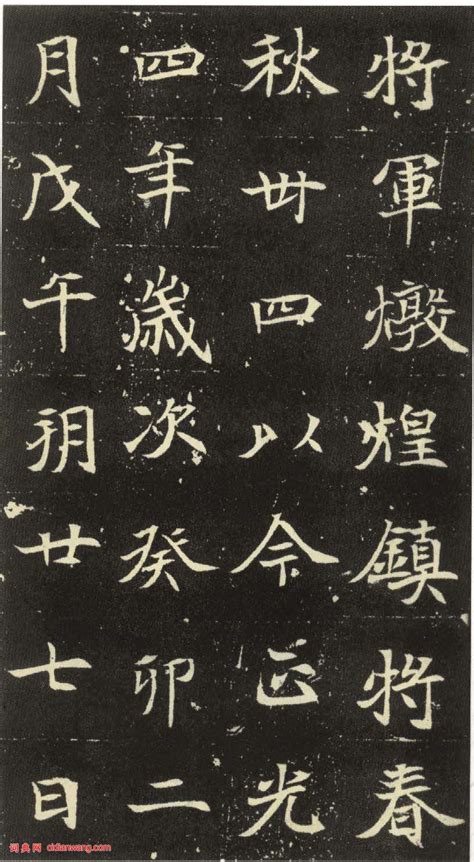 將軍燉煌鎮將春
秋卅四以今正光
四年歲次癸卯二
月戊午朔廿七日
词典网 cidianwang.com